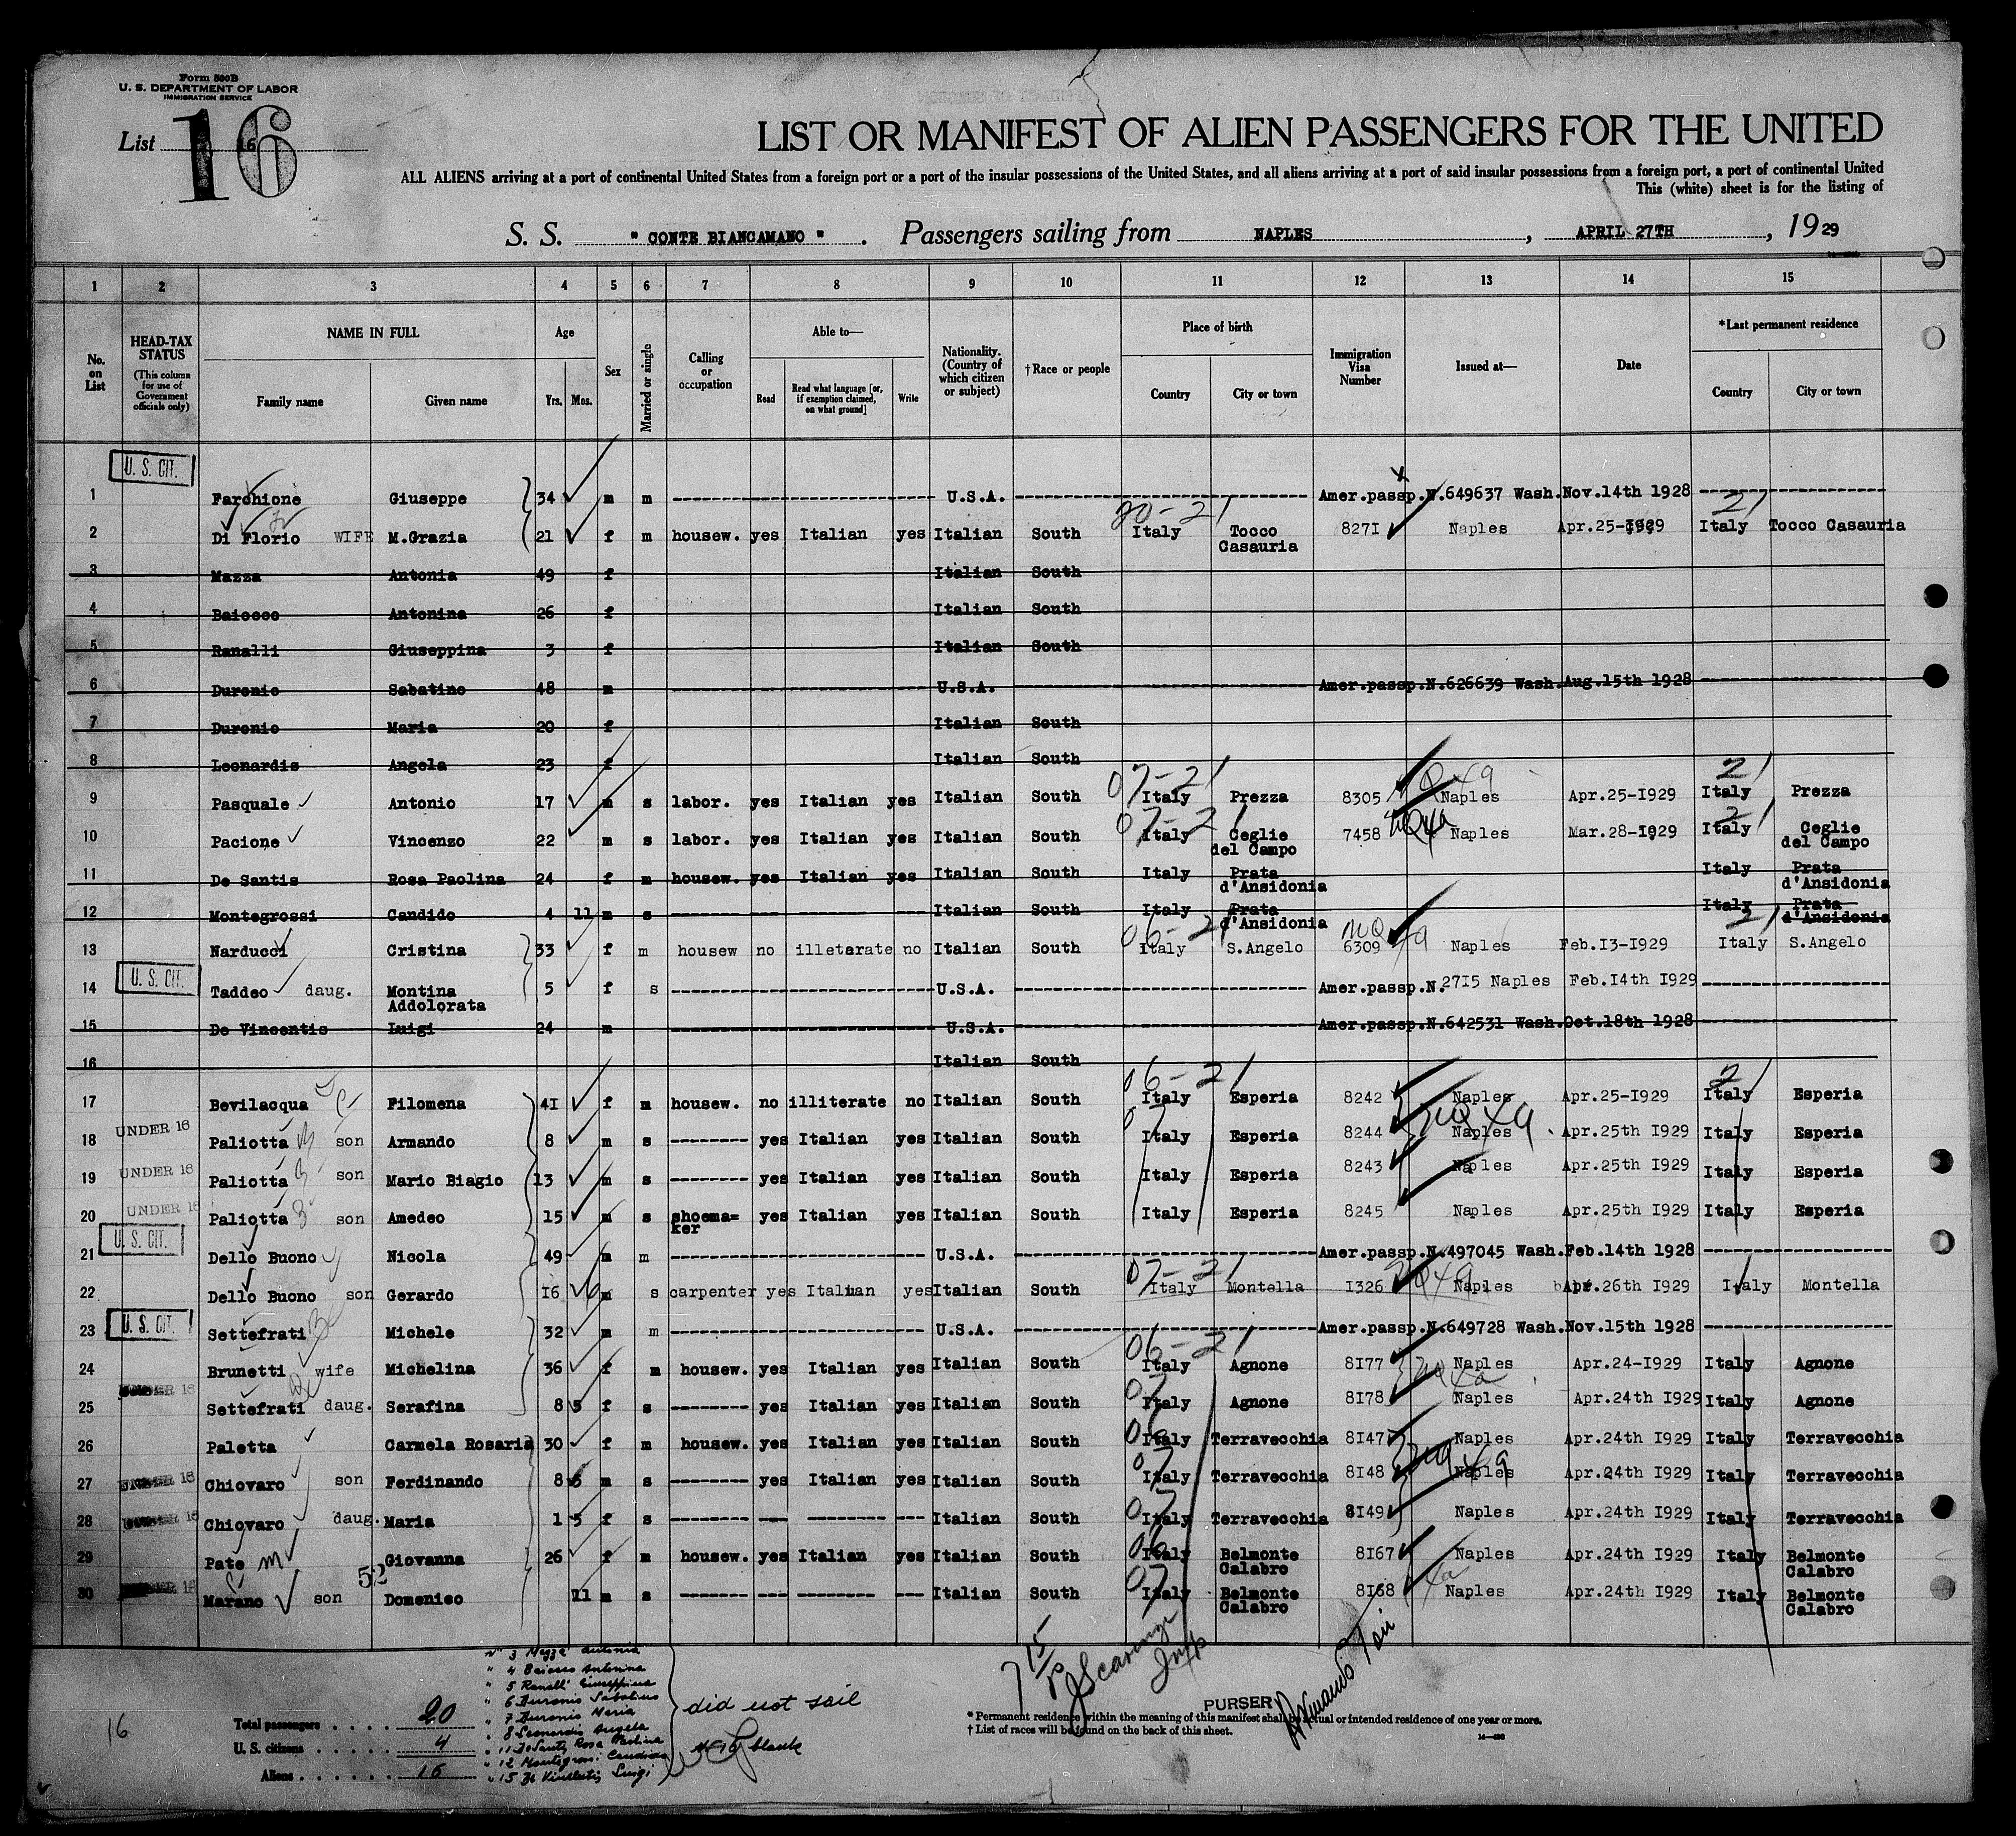 Form 500B
U. S. DEPARTMENT OF LABOR
IMMIGRATION SERVICE
List 16
16
LIST OR MANIFEST OF ALIEN PASSENGERS FOR THE UNITED
ALL ALIENS arriving at a port of continental United States from a foreign port or a port of the insular possessions of the United States, and all aliens arriving at a port of said insular possessions from a foreign port, a port of continental United
This (white) sheet is for the listing of
S. S. " CONTE BIANCAMANO " . Passengers sailing from NAPLES , APRIL 27TH , 1929
1 2 3 4 5 6 7 8 9 10 11 12 13 14 15
No. on List
HEAD-TAX STATUS (This column for use of Government officials only)
NAME IN FULL Family name Given name
Age Yrs. Mos.
Sex
Married or single
Calling or occupation
Able to— Read Read what language [or, if exemption claimed, on what ground] Write
Nationality. (Country of which citizen or subject)
†Race or people
Place of birth Country City or town
Immigration Visa Number
Issued at—
Date
*Last permanent residence Country City or town
U. S. CIT.
1 Farchione Giuseppe 34 m m U.S.A. Amer.passp.N.649637 Wash.Nov.14th 1928
20-21 21
2 Di Florio WIFE M.Grazia 21 f m housew. yes Italian yes Italian South Italy Tocco Casauria 8271 Naples Apr.25-1929 Italy Tocco Casauria
3 Mazza Antonia 49 f Italian South
4 Baiocco Antonina 26 f Italian South
5 Ranalli Giuseppina 3 f Italian South
6 Duronio Sabatino 48 m U.S.A. Amer.passp.N.626639 Wash.Aug.15th 1928
7 Duronio Maria 20 f Italian South
8 Leonardis Angela 23 f Italian South
07-21 21
9 Pasquale Antonio 17 m s labor. yes Italian yes Italian South Italy Prezza 8305 Naples Apr.25-I929 Italy Prezza
07-21 21
10 Pacione Vincenzo 22 m s labor. yes Italian yes Italian South Italy Ceglie del Campo 7458 Naples Mar.28-I929 Italy Ceglie del Campo
11 De Santis Rosa Paolina 24 f m housew. yes Italian yes Italian South Italy Prata d'Ansidonia Italy Prata d'Ansidonia
12 Montegrossi Candido 4 11 m s Italian South Italy Prata d'Ansidonia Italy Prata d'Ansidonia
06-21 21
13 Narducci Cristina 33 f m housew no illeterate no Italian South Italy S.Angelo 6309 Naples Feb.I3-I929 Italy S.Angelo
U. S. CIT.
14 Taddeo daug. Montina Addolorata 5 f s U.S.A. Amer.passp.N.27I5 Naples Feb.I4th I929
15 De Vincentis Luigi 24 m U.S.A. Amer.passp.N.642531 Wash.Oct.18th 1928
16 Italian South
06-21 21
17 Bevilacqua Filomena 4I f m housew. no illiterate no Italian South Italy Esperia 8242 Naples Apr.25-I929 Italy Esperia
UNDER 16
18 Paliotta son Armando 8 m s yes Italian yes Italian South Italy Esperia 8244 Naples Apr.25th I929 Italy Esperia
UNDER 16
19 Paliotta son Mario Biagio 13 m s yes Italian yes Italian South Italy Esperia 8243 Naples Apr.25th I929 Italy Esperia
UNDER 16
20 Paliotta son Amedeo 15 m s shoema=ker yes Italian yes Italian South Italy Esperia 8245 Naples Apr.25th I929 Italy Esperia
U. S. CIT.
21 Dello Buono Nicola 49 m m U.S.A. Amer.passp.N.497045 Wash.Feb.14th 1928
07-21
22 Dello Buono son Gerardo I6 m s carpenter yes Italian yes Italian South Italy Montella I326 Naples Apr.26th I929 Italy Montella
U. S. CIT.
23 Settefrati Michele 32 m m U.S.A. Amer.passp.N.649728 Wash.Nov.15th 1928
06-21
24 Brunetti wife Michelina 36 f m housew. yes Italian yes Italian South Italy Agnone 8I77 Naples Apr.24-I929 Italy Agnone
25 Settefrati daug. Serafina 8 5 f s yes Italian yes Italian South Italy Agnone 8I78 Naples Apr.24th I929 Italy Agnone
26 Paletta Carmela Rosaria 30 f m housew. yes Italian yes Italian South Italy Terravecchia 8I47 Naples Apr.24th I929 Italy Terravecchia
27 Chiovaro son Ferdinando 8 5 m s yes Italian yes Italian South Italy Terravecchia 8I48 Naples Apr.24th I929 Italy Terravecchia
28 Chiovaro daug. Maria 1 5 f s Italian South Italy Terravecchia 8I49 Naples Apr.24th I929 Italy Terravecchia
29 Pate Giovanna 26 f m housew. yes Italian yes Italian South Italy Belmonte Calabro 8I67 Naples Apr.24th I929 Italy Belmonte Calabro
52
30 Marano son Domenico 11 m s Italian South Italy Belmonte Calabro 8I68 Naples Apr.24th I929 Italy Belmonte Calabro
16
Total passengers 20
U. S. citizens 4
Aliens 16
N° 3 Mazza Antonia
" 4 Baiocco Antonina
" 5 Ranalli Giuseppina
" 6 Duronio Sabatino
" 7 Duronio Maria
" 8 Leonardis Angela
" 11 De Santis Rosa Paolina
" 12 Montegrossi Candido
" 15 De Vincentis Luigi
did not sail
16 blank
PURSER
* Permanent residence within the meaning of this manifest shall be actual or intended residence of one year or more.
† List of races will be found on the back of this sheet.